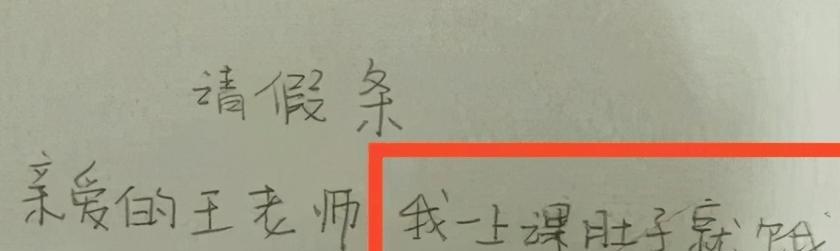 请假条
亲爱的王老师我一上课肚子就饿